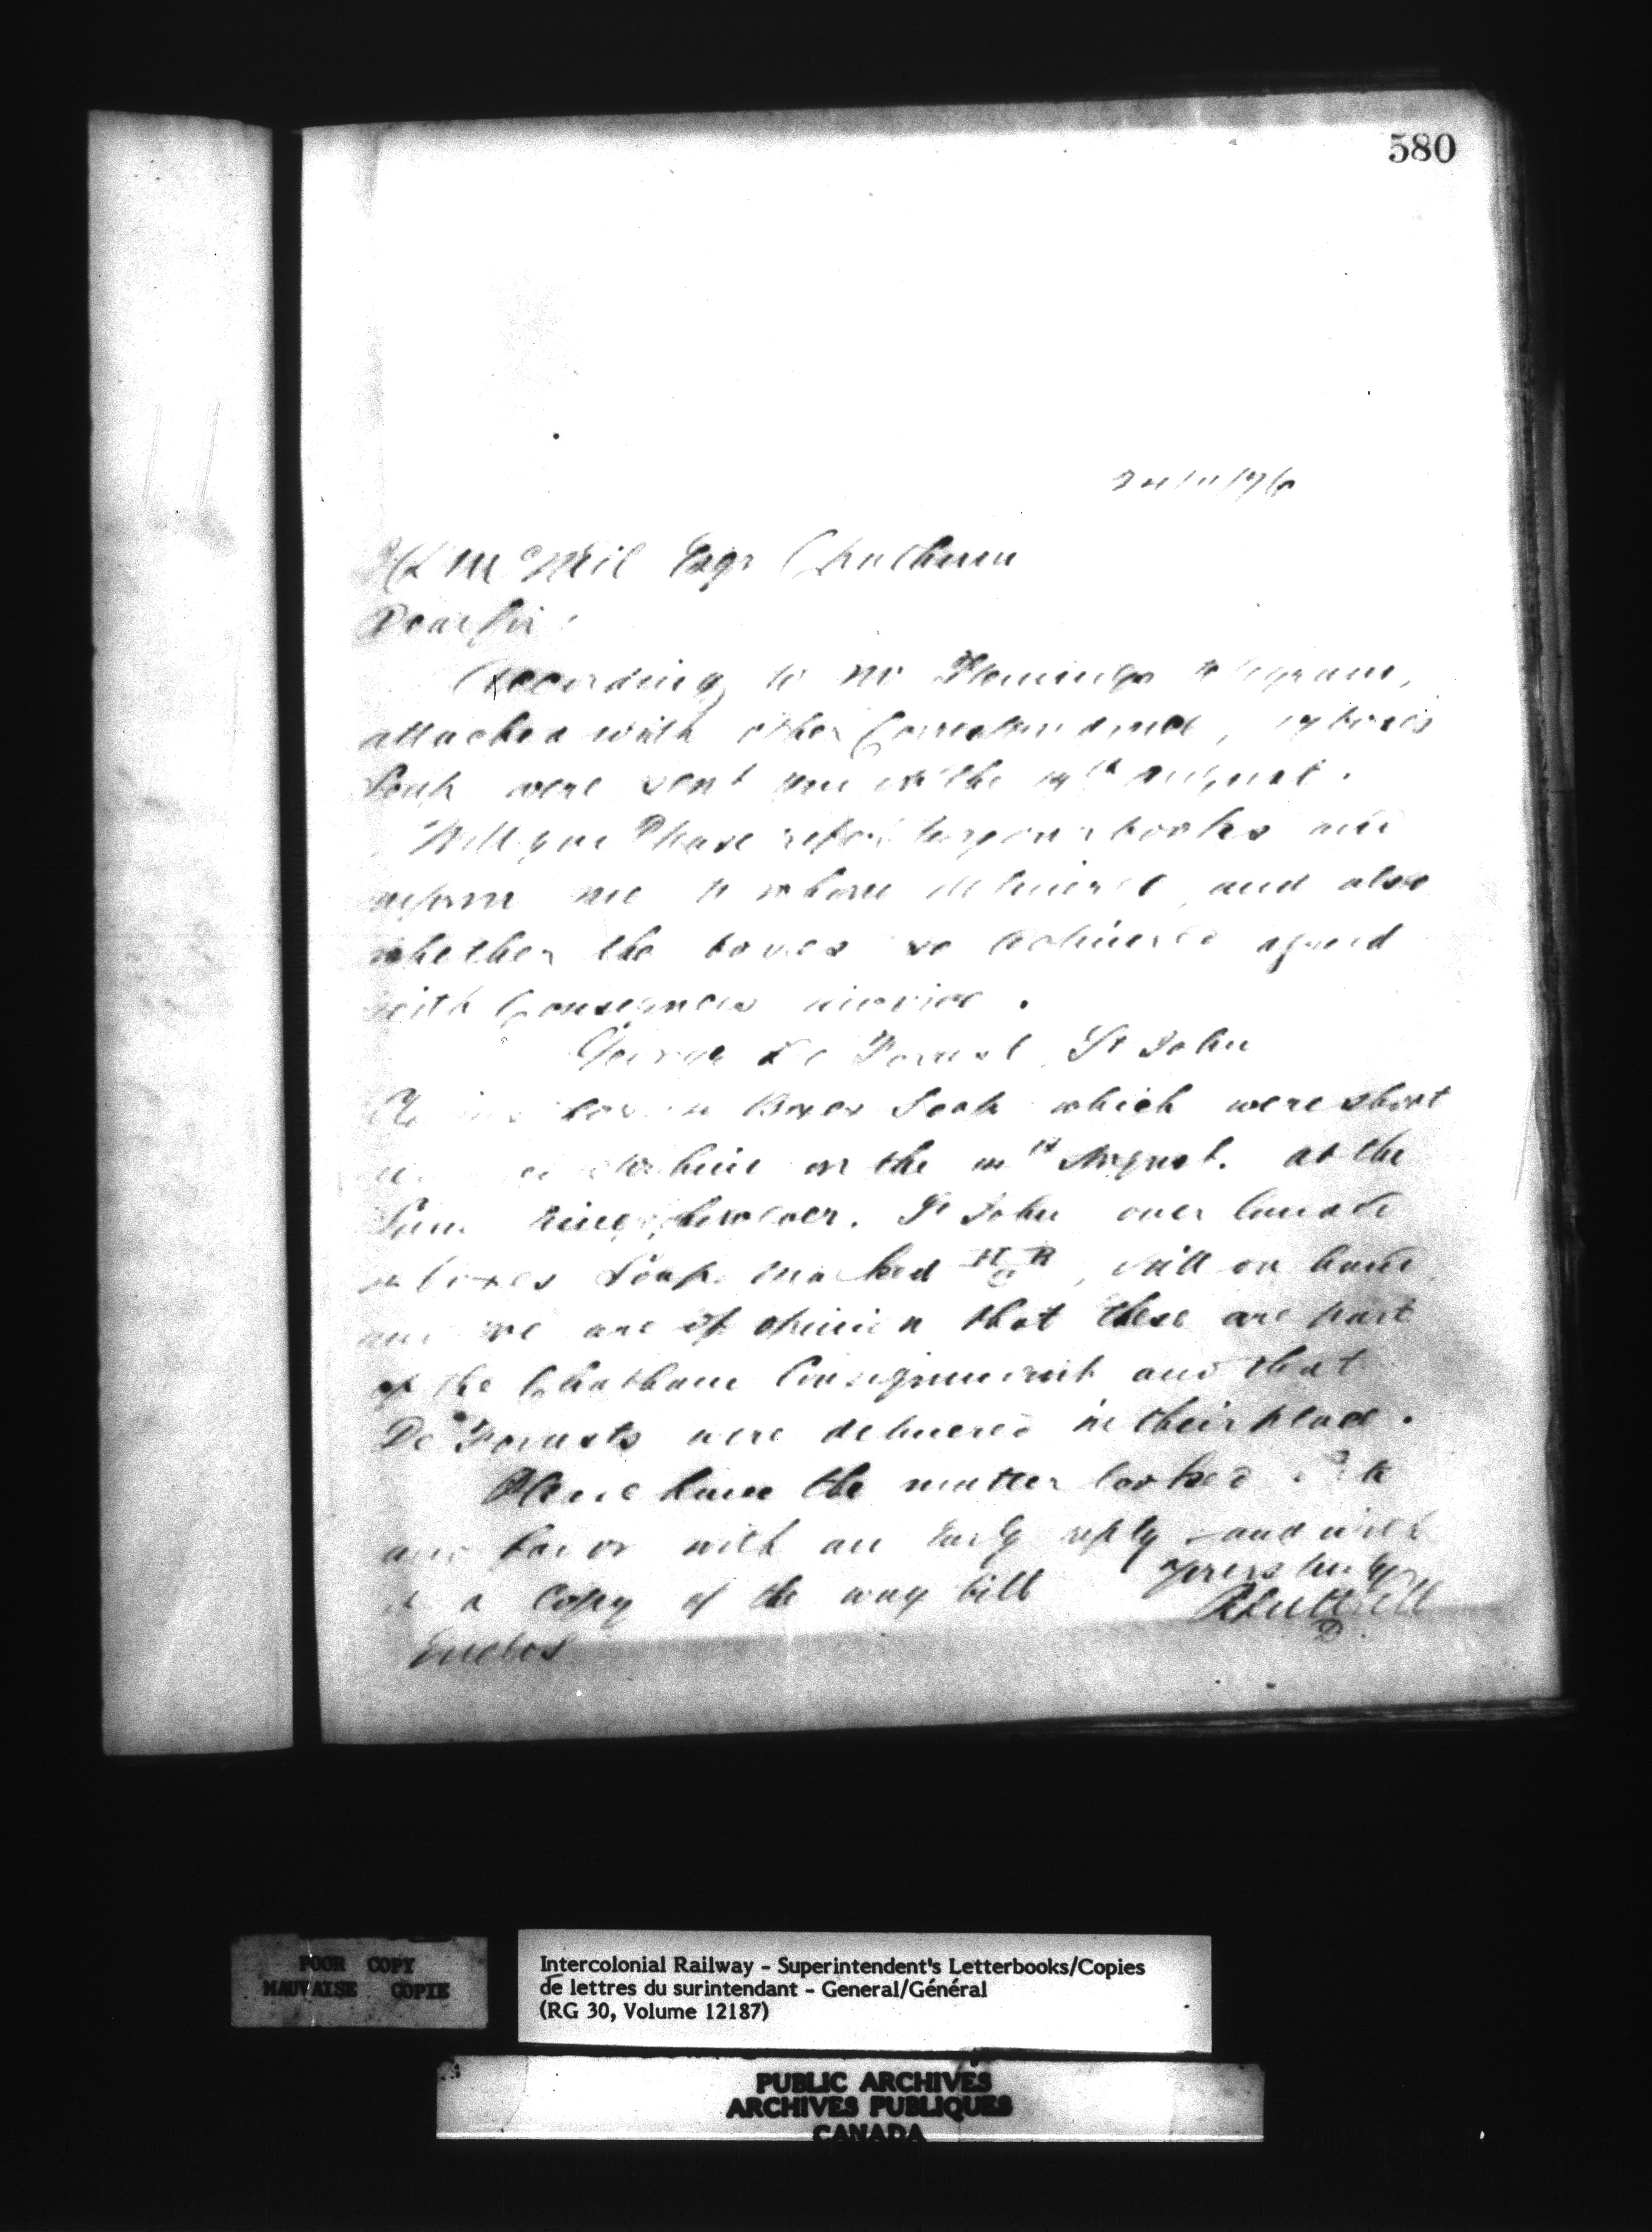 580
McNeil Esqr Chatham
Dear Sir
According to Mr Flemings telegram,
attached with other Correspondence, boxes
Soap were sent you on the August.
Will you Please refer to your books and
inform me to whom delivered and also
whether the boxes so delivered agreed
with Consignees invoice.
George De Forest, St John
Boxes Soap which were short
on the August. at the
Same time, however, St John over
boxes Soap marked H B, still on hand
and we are of opinion that these are part
of the Chatham Consignment and that
De Forests were delivered in their place.
Please have the matter looked
and favor with an Early reply and with
a Copy of the way bill yours truly
Enclos
POOR COPY
MAUVAISE COPIE
Intercolonial Railway - Superintendent's Letterbooks/Copies
de lettres du surintendant - General/Général
(RG 30, Volume 12187)
PUBLIC ARCHIVES
ARCHIVES PUBLIQUES
CANADA